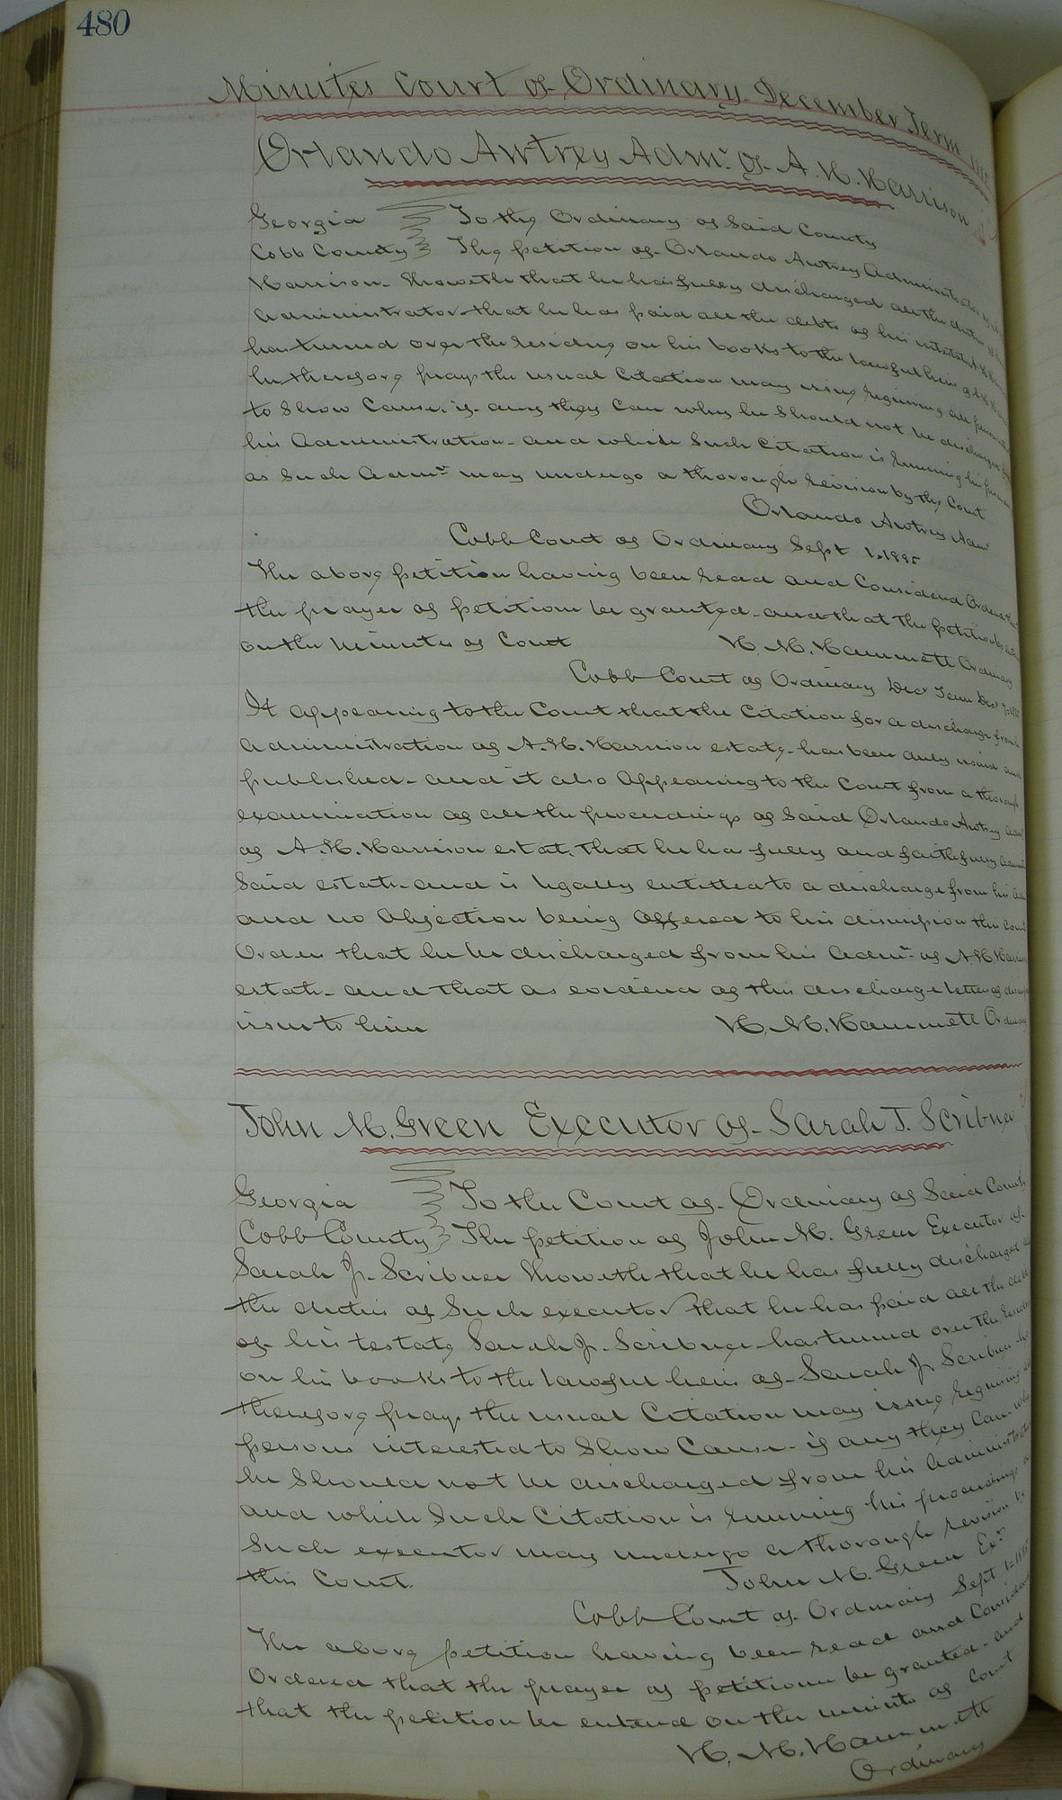 480
Minutes Court of Ordinary December Term
Orlando Awtrey Admr. of A. H. Harrison
Georgia To the Ordinary of Said County
Cobb County The petition of Orlando Awtrey Administrator
Harrison Showeth that he has fully discharged all the duties
administrator that he has paid all the debts of his intestate
has turned over the residue on his books to the lawful heirs of
he therefore prays the usual Citation may issue requiring all persons
to Show Cause if any they Can why he Should not be discharged
his administration and while Such Citation is running his
as Such Admr may undergo a thorough revision by the Court
Orlando Awtrey Admr
Cobb Court of Ordinary Sept 1, 1885
The above petition having been read and Considered Ordered
the prayer of petition be granted and that the petition be
on the Minutes of Court H. M. Hammett Ordinary
Cobb Court of Ordinary Decr Term Decr 7
It appearing to the Court that the Citation for a discharge from
administration of A. H. Harrison estate has been duly issued and
published and it also appearing to the Court from a thorough
examination of all the proceedings of Said Orlando Awtrey Admr
of A. H. Harrison estate that he has fully and faithfully
Said estate and is legally entitled to a discharge from his
and no objection being offered to his dismission the Court
Orders that he be discharged from his Admr. of A H
estate and that as evidence of this discharge letters of
issue to him H. M. Hammett Ordinary
John M. Green Executor of Sarah J. Scribner
Georgia To the Court of Ordinary of Said County
Cobb County The petition of John M. Green Executor of
Sarah J. Scribner Showeth that he has fully discharged
the duties of Such executor that he has paid all the debts
of his testate Sarah J. Scribner has turned over the residue
on his books to the lawful heirs of Sarah J. Scribner he
therefore prays the usual Citation may issue requiring all
persons interested to Show Cause if any they Can why
he Should not be discharged from his Administration
and while Such Citation is running his proceedings as
Such executor may undergo a thorough revision by
this Court.
John M. Green Exr
Cobb Court of Ordinary Sept 1, 1885
The above petition having been read and Considered
Ordered that the prayer of petition be granted and
that the petition be entered on the minutes of Court
H. M. Hammett
Ordinary